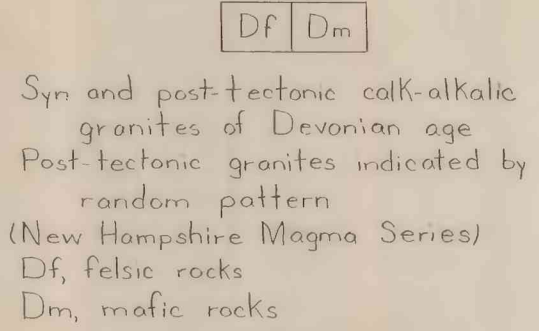 Df Dm
Syn and post-tectonic calk-alkalic
granites of Devonian age
Post-tectonic granites indicated by
random pattern
(New Hampshire Magma Series)
Df, felsic rocks
Dm, mafic rocks